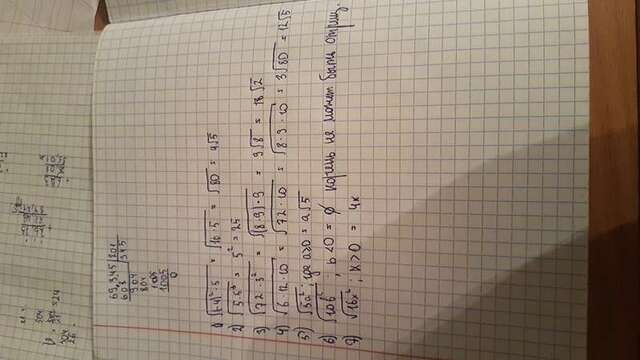 504
= 24
69,345 | 201
603 | 345
904
804
1005
1005
0
1) √(-4)²·5 = √16·5 = √80 = 4√5
2) √5·5³ = 5² = 25
3) √72·3² = √(8·9)·9 = 9√8 = 18√2
4) √6·12·10 = √72·10 = √8·9·10 = 3√80 = 12√5
5) √5a²; где a≥0 = a√5
6) √10b², b<0 = ∅ корень не может быть отриц.
7) √16x²; x>0 = 4x